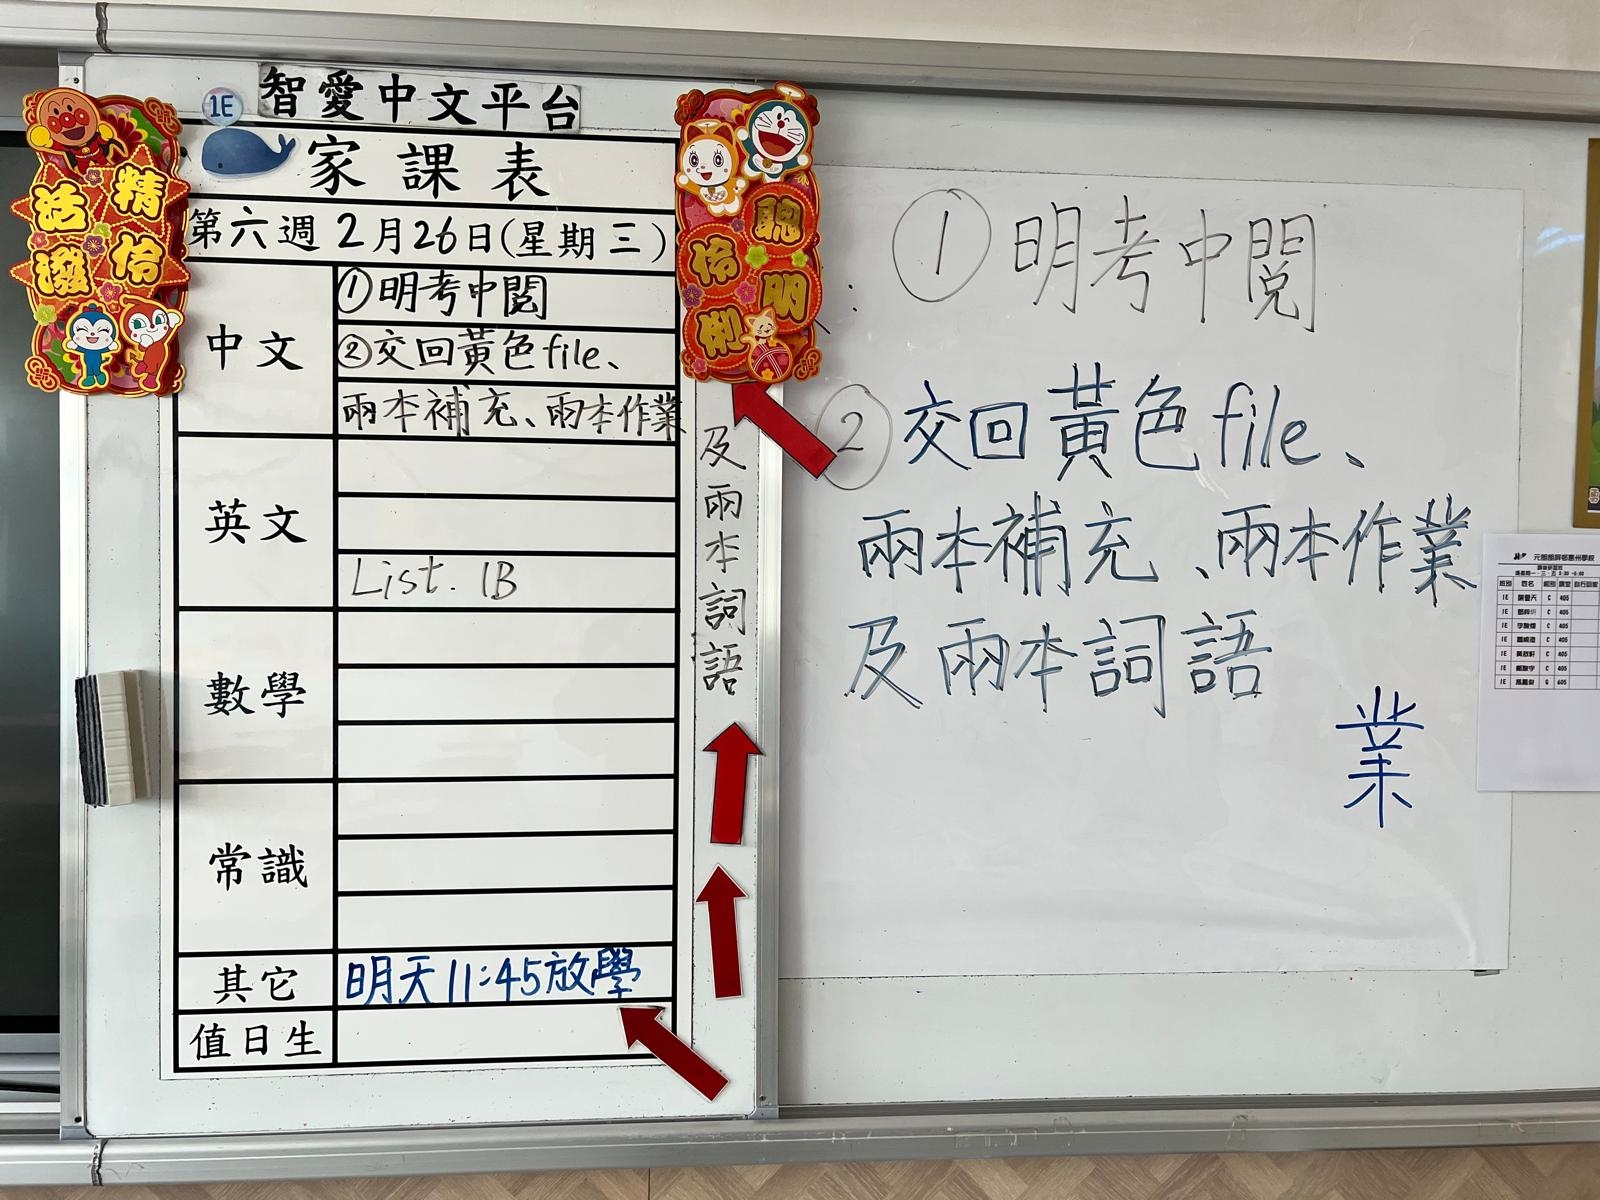 1E
智愛中文平台
家課表
第六週2月26日(星期三)
中文
①明考中閱
②交回黃色file、
兩本補充、兩本作業
及兩本詞語
英文
List. 1B
數學
常識
其它
明天11:45放學
值日生
精伶
活潑
聰明
伶俐
① 明考中閱
② 交回黃色file、
兩本補充、兩本作業
及兩本詞語
業
班別 姓名
1E C 405
1E C 405
1E C 405
1E C 405
1E C 405
1E C 405
1E G 605